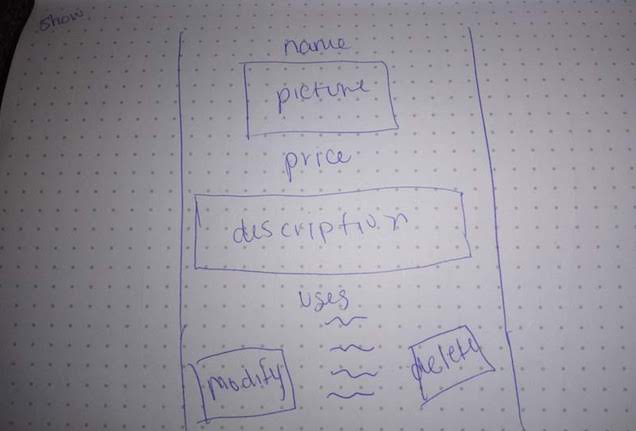 Show
name
picture
price
description
uses
modify
delete